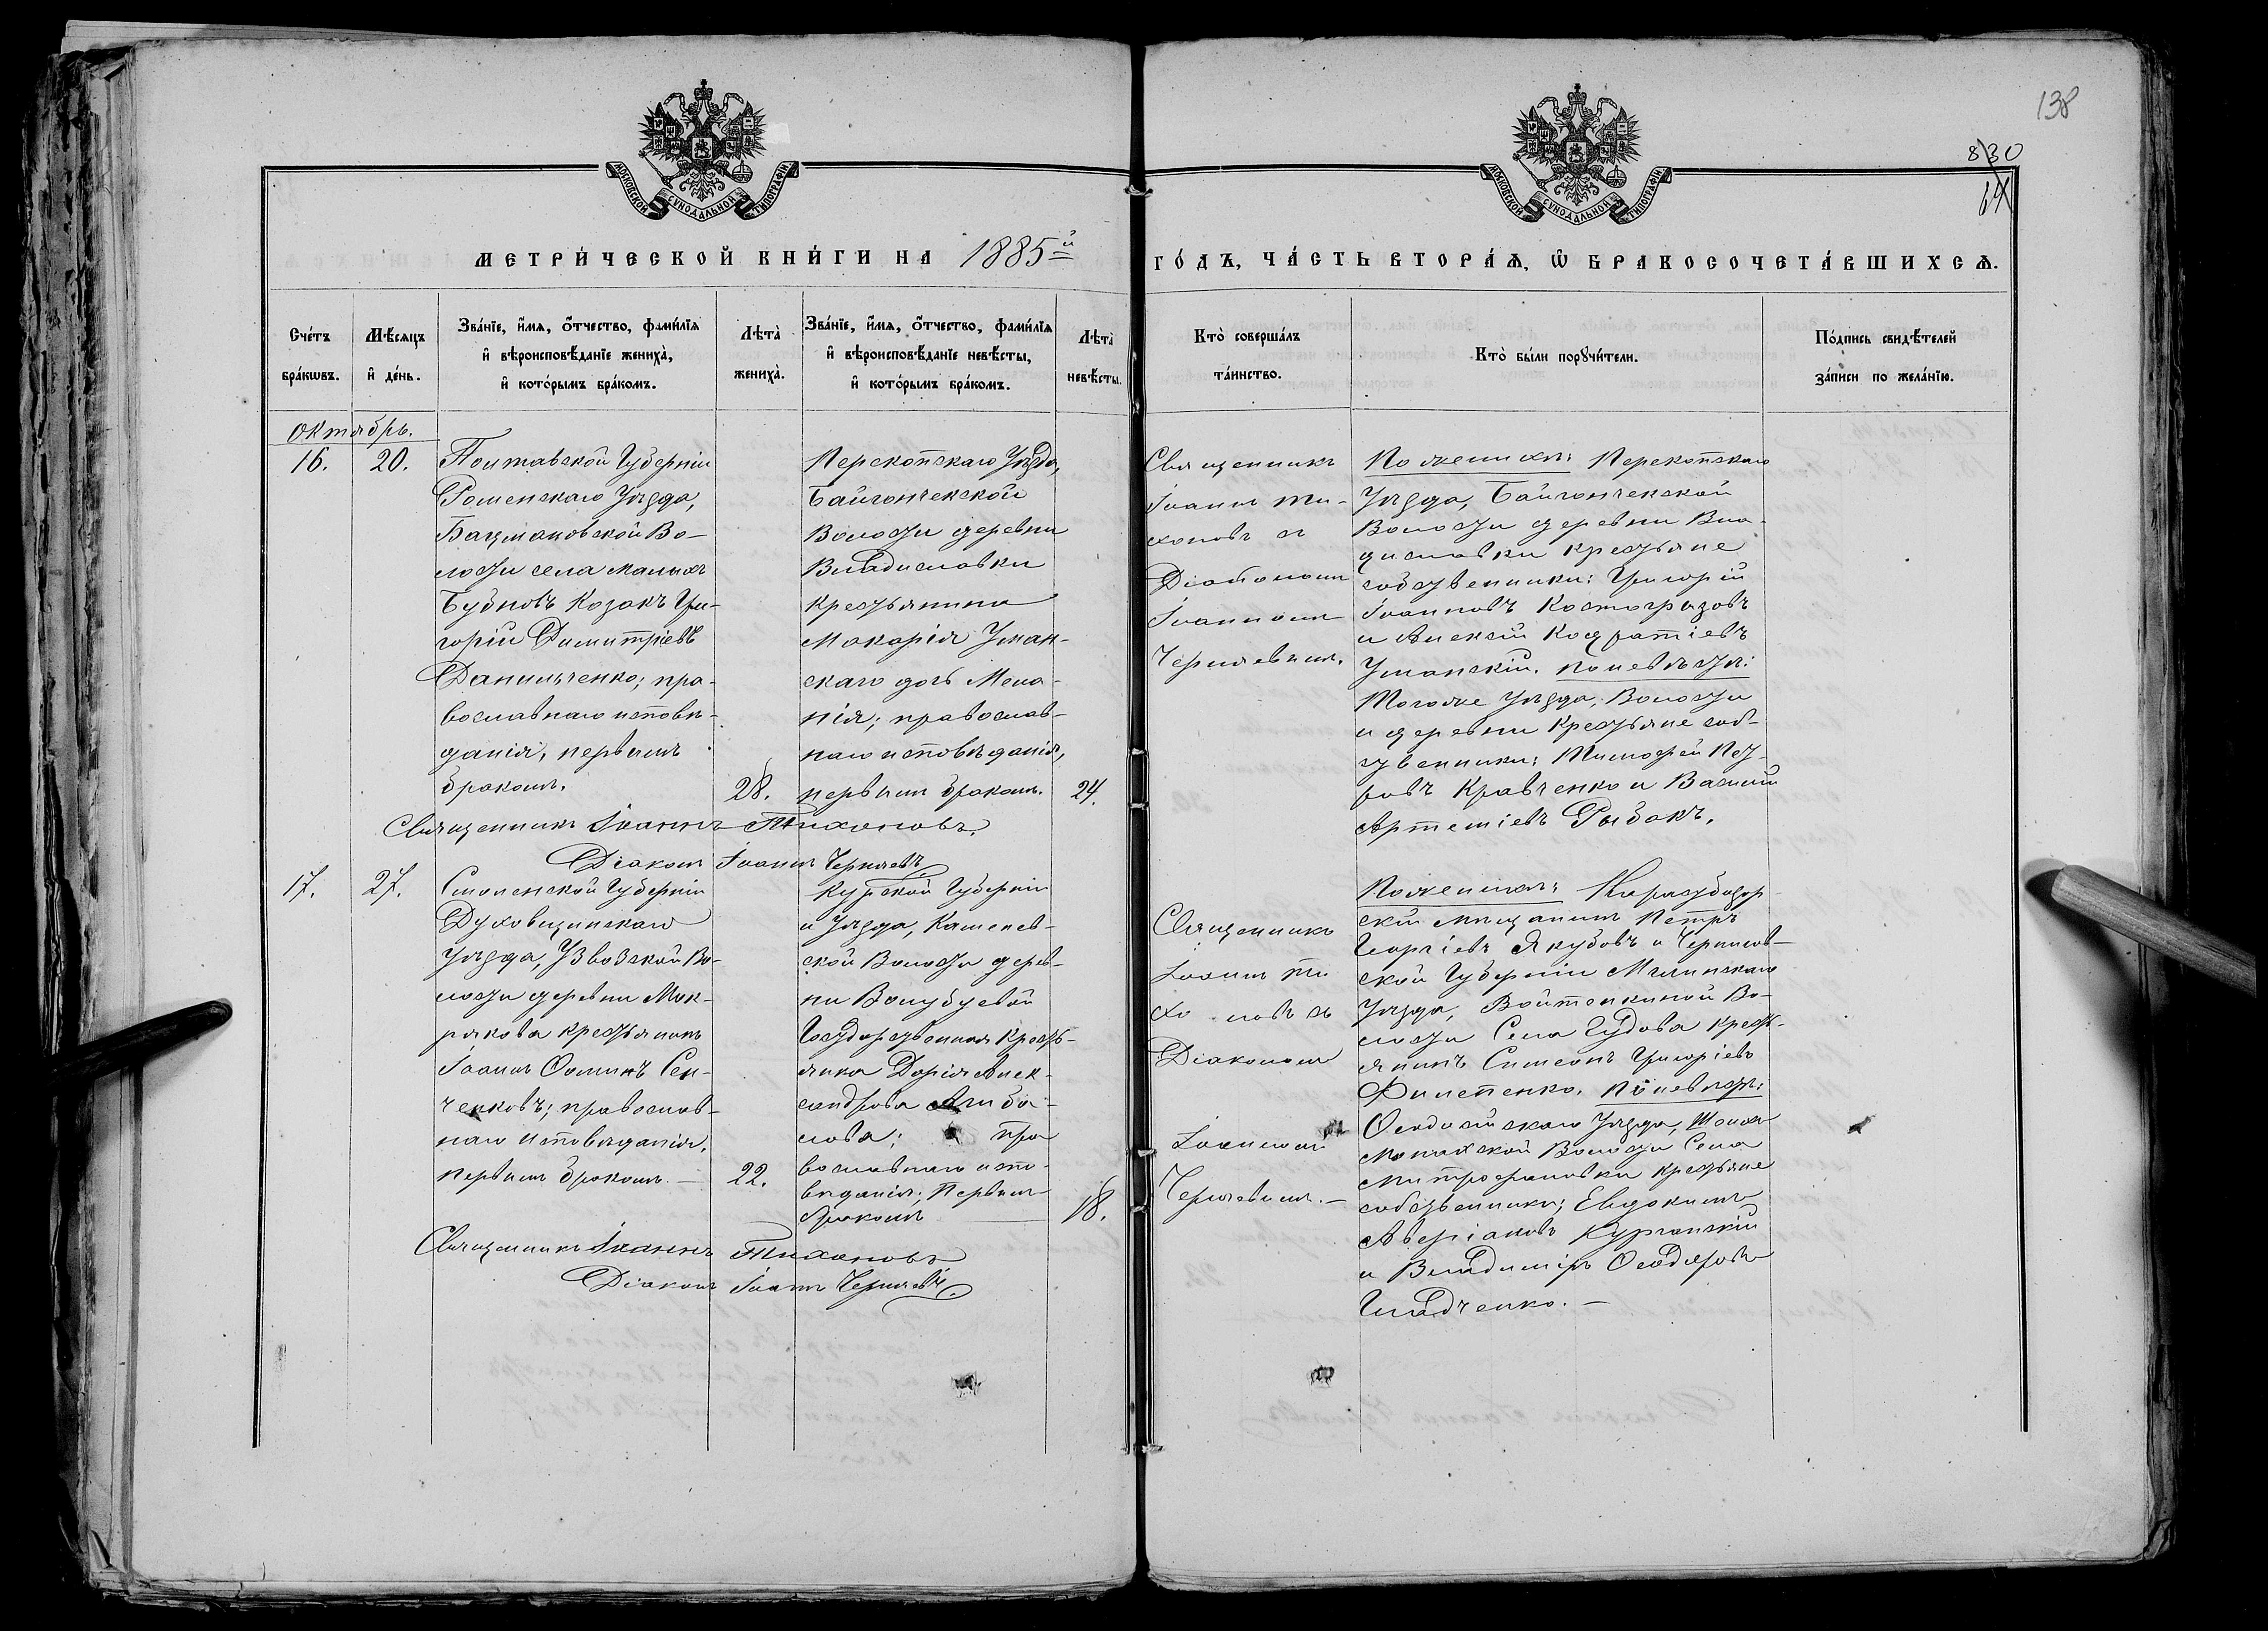 138
830
64
МОСКОВСКОЙ СѴНОДАЛЬНОЙ ТИПОГРАФІИ
МОСКОВСКОЙ СѴНОДАЛЬНОЙ ТИПОГРАФІИ
МЕТРИ́ЧЕСКОЙ КНИ́ГИ НА 1885й
ГО́ДЪ, ЧА́СТЬ ВТОРА́Ѧ, Ѡ БРАКОСОЧЕТА́ВШИХСѦ.
Сче́тъ бра́кѡвъ.
Мѣ́сѧцъ и҆ де́нь.
Зва́нїе, и҆́мѧ, ѻ҆́тчество, фами́лїѧ
и҆ вѣроисповѣ́данїе женихà,
и҆ кото́рымъ бра́комъ.
Лѣтà женихà.
Зва́нїе, и҆́мѧ, ѻ҆́тчество, фами́лїѧ
и҆ вѣроисповѣ́данїе невѣ́сты,
и҆ кото́рымъ бра́комъ.
Лѣтà невѣ́сты.
Ктò соверша́лъ
та́инство.
Ктò бы́ли порꙋчи́тели.
По́дпись свидѣ́телей
за́писи по жела́нїю.
Октябрь.
16.
20.
Полтавской Губерніи
Роменскаго Уѣзда,
Бацмановской Во-
лости села Малыхъ
Бубновъ Козакъ Гри-
горій Димитріевъ
Данильченко; пра-
вославнаго исповѣ-
данія, первымъ
бракомъ.
28.
Перекопскаго Уѣзда,
Байгончекской
Волости деревни
Владиславки
крестьянина
Макарія Уман-
скаго дочь Мела-
нія; православ-
наго исповѣданія,
первымъ бракомъ.
24.
Священникъ
Іоаннъ Ти-
хоновъ съ
Діакономъ
Іоанномъ
Черняевымъ.
По женихѣ: Перекопскаго
Уѣзда, Байгончекской
Волости деревни Вла-
диславки крестьяне
собственники: Григорій
Іоанновъ Костогрызовъ
и Алексѣй Кодратіевъ
Уманскій. По невѣстѣ:
Тогоже Уѣзда, Волости
и деревни крестьяне соб-
ственники: Тимофей Пет-
ровъ Кравченко и Василій
Артеміевъ Рыбакъ.
Священникъ Іоаннъ Тихоновъ.
Діаконъ Іоаннъ Черняевъ
17.
27.
Смоленской Губерніи
Духовщинскаго
Уѣзда, Узвозской Во-
лости деревни Мок-
рякова крестьянинъ
Іоаннъ Ѳоминъ Сен-
ченковъ; православ-
наго исповѣданія,
первымъ бракомъ. —
22.
Курской Губерніи
и Уѣзда, Каменев-
ской Волости дерев-
ни Волубуевой
Государственная кресть-
янка Дарія Алек-
сандрова Алиба-
лова; пра
вославнаго испо-
вѣданія; первымъ
бракомъ —
18.
Священникъ
Іоаннъ Ти
хоновъ съ
Діакономъ
Іоанномъ
Черняевымъ. —
По женихѣ: Карасубазар-
скій мѣщанинъ Петръ
Георгіевъ Якубовъ и Чернигов-
ской Губерніи Мглинскаго
Уѣзда, Волости
Села Гудова кресть-
янинъ Симеонъ Григоріевъ
Филипенко. По невѣстѣ:
Ѳеодосійскаго Уѣзда,
Волости Села
Митрофановки крестьяне
собственники; Евдокимъ
Аверіановъ Курганскій
и Владиміръ Ѳеодоровъ
Гладченко. —
Священникъ Іоаннъ Тихоновъ
Діаконъ Іоаннъ Черняевъ.